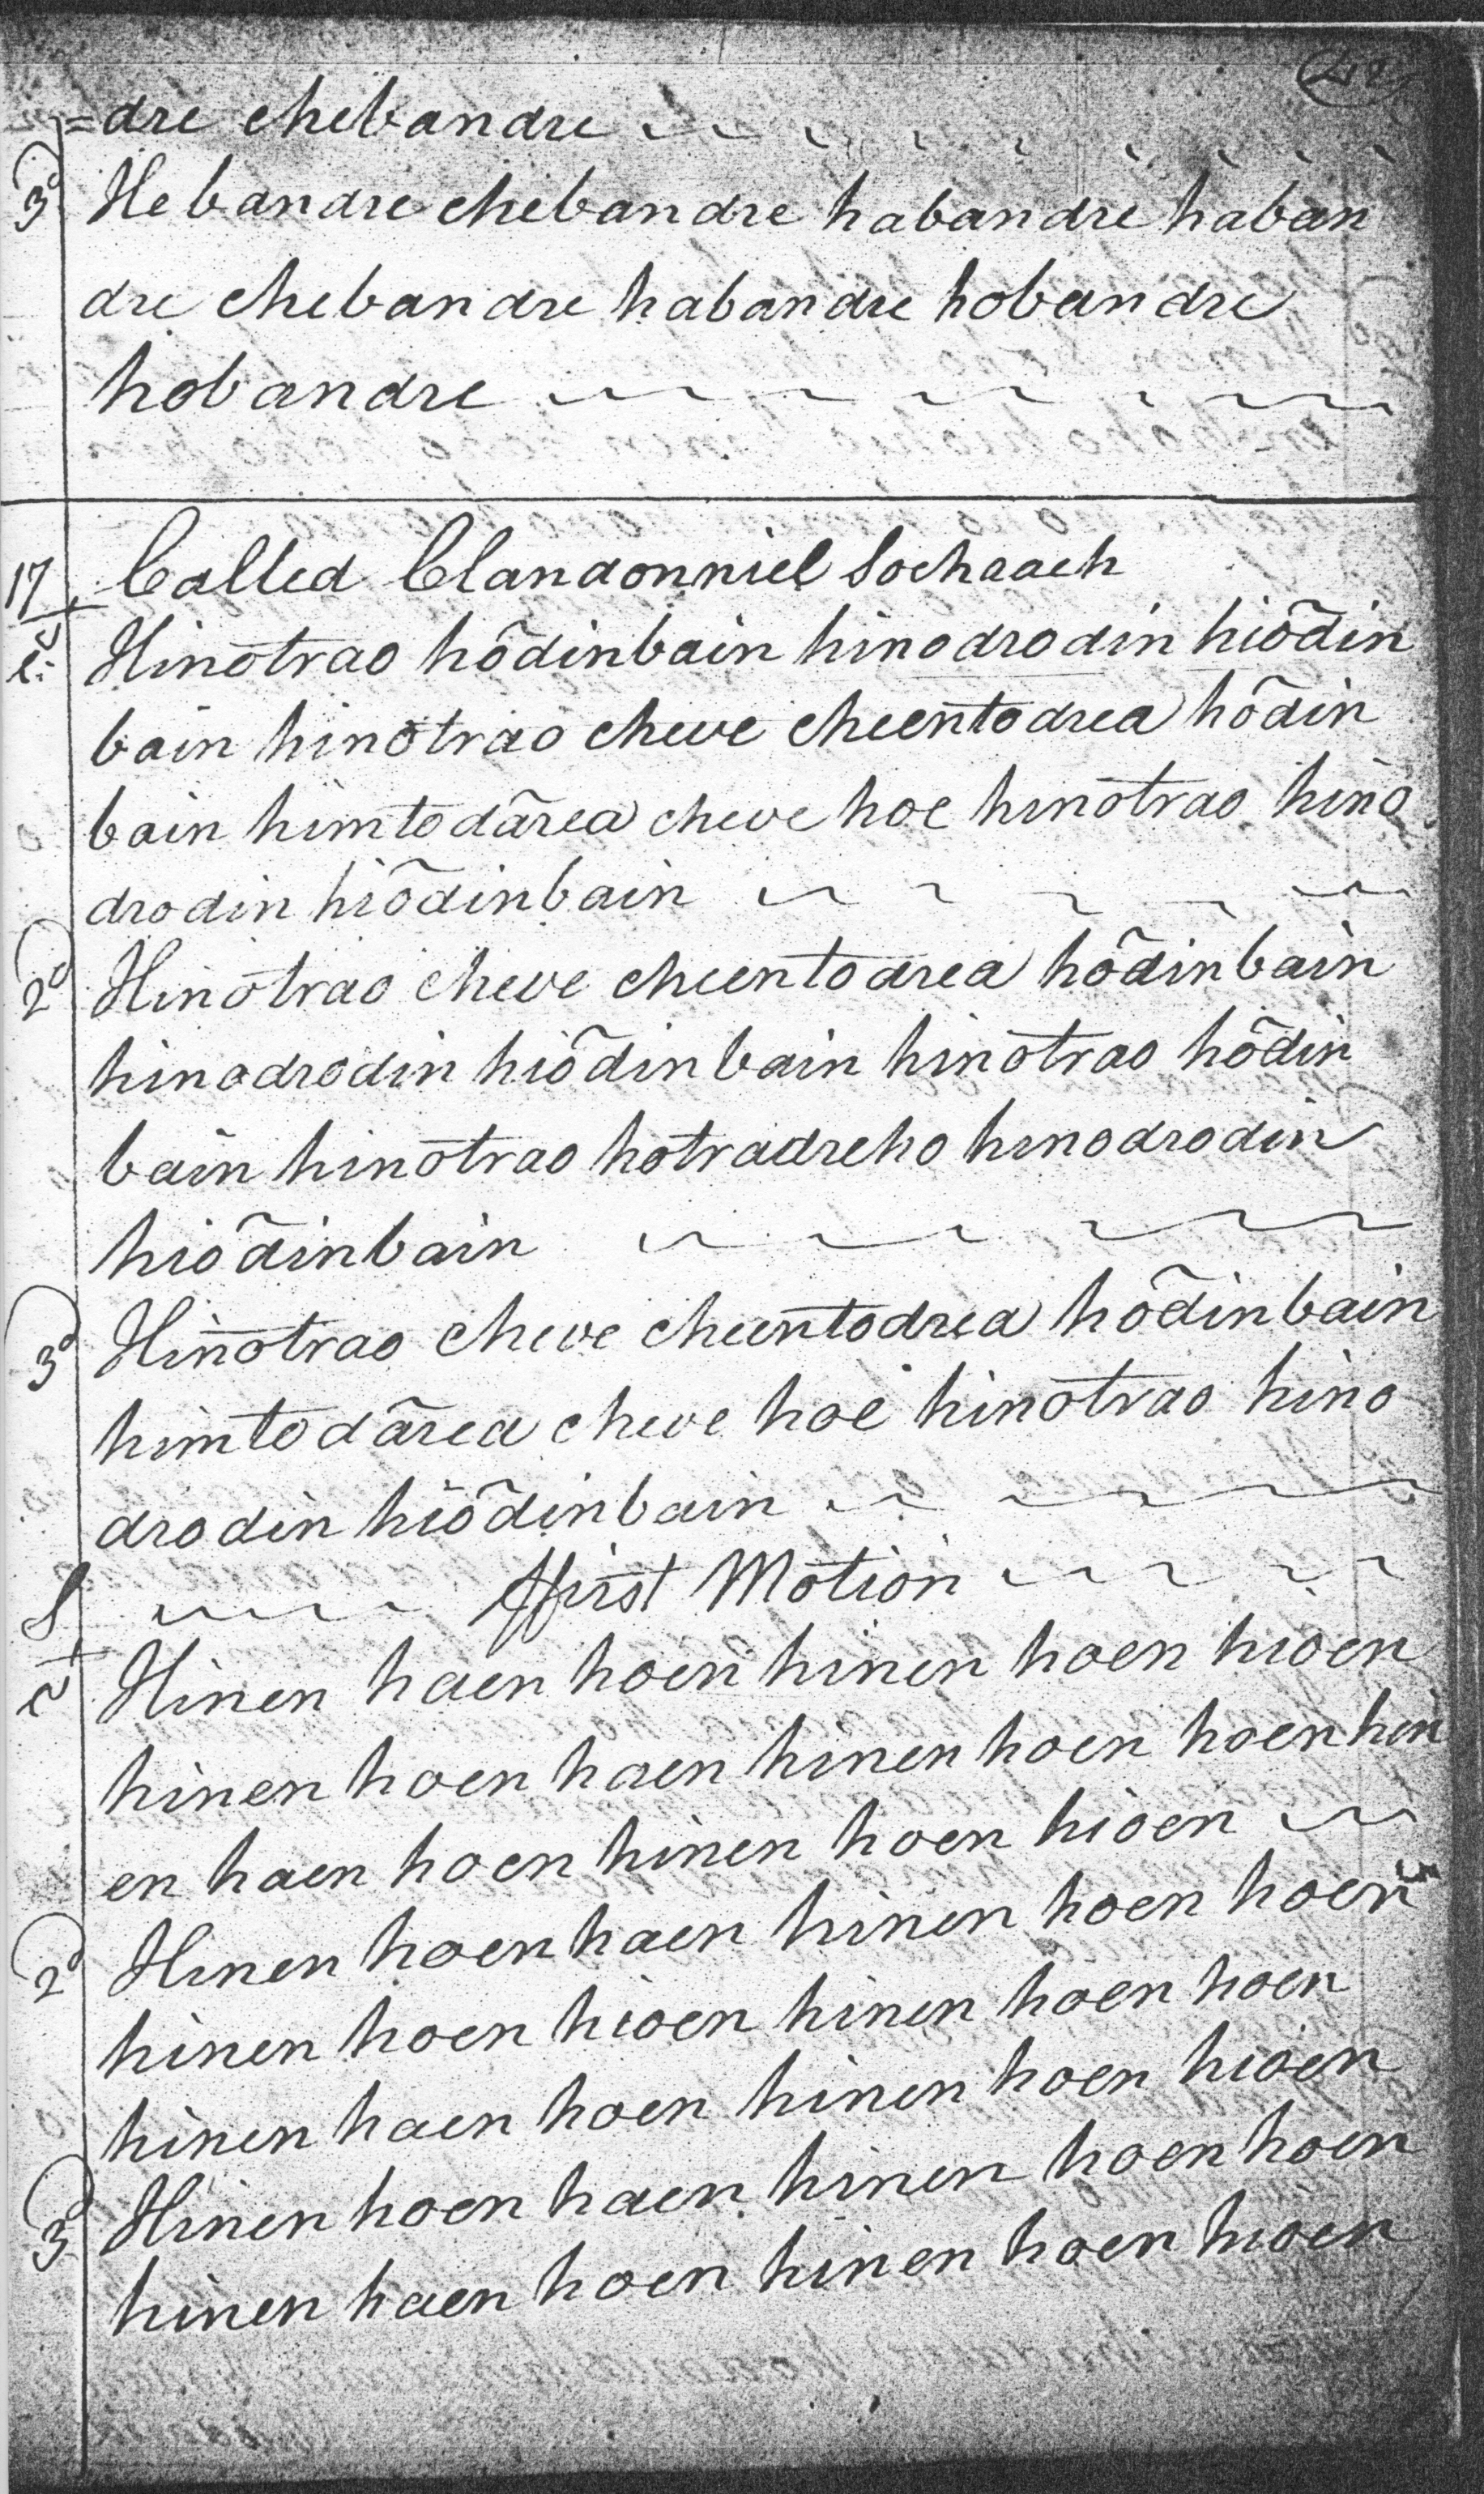 =dre chebandre
3d Hebandre chebandre habandre haban
dre chebandre habandre hobandre
hobandre
17 Called Clandonniel Sochrach
Hinōtrao hōdinbain hinodrodin hiōdin
bain hinōtrao cheve cheentodrea hōdin
bain himtodārea cheve hoe hinōtrao hino
drodin hiōdinbain
2d Hinōtrao cheve cheentodrea hōdinbain
hinodrodin hiōdinbain hinōtrao hōdin
bain hinōtrao hotradreho hinodrodin
hiōdinbain
3d Hinōtrao cheve cheentodrea hōdinbain
himtodārea cheve hoe hinōtrao hino
drodin hiōdinbain
ffirst Motion
Hinen haen hoen hinen hoen hioen
hinen hoen haen hinen hoen hoen hin
en haen hoen hinen hoen hioen
2d Hinen hoen haen hinen hoen hoen
hinen hoen hioen hinen hoen hoen
hinen haen hoen hinen hoen hioen
3d Hinen hoen haen hinen hoen hoen
hinen haen hoen hinen hoen hioen